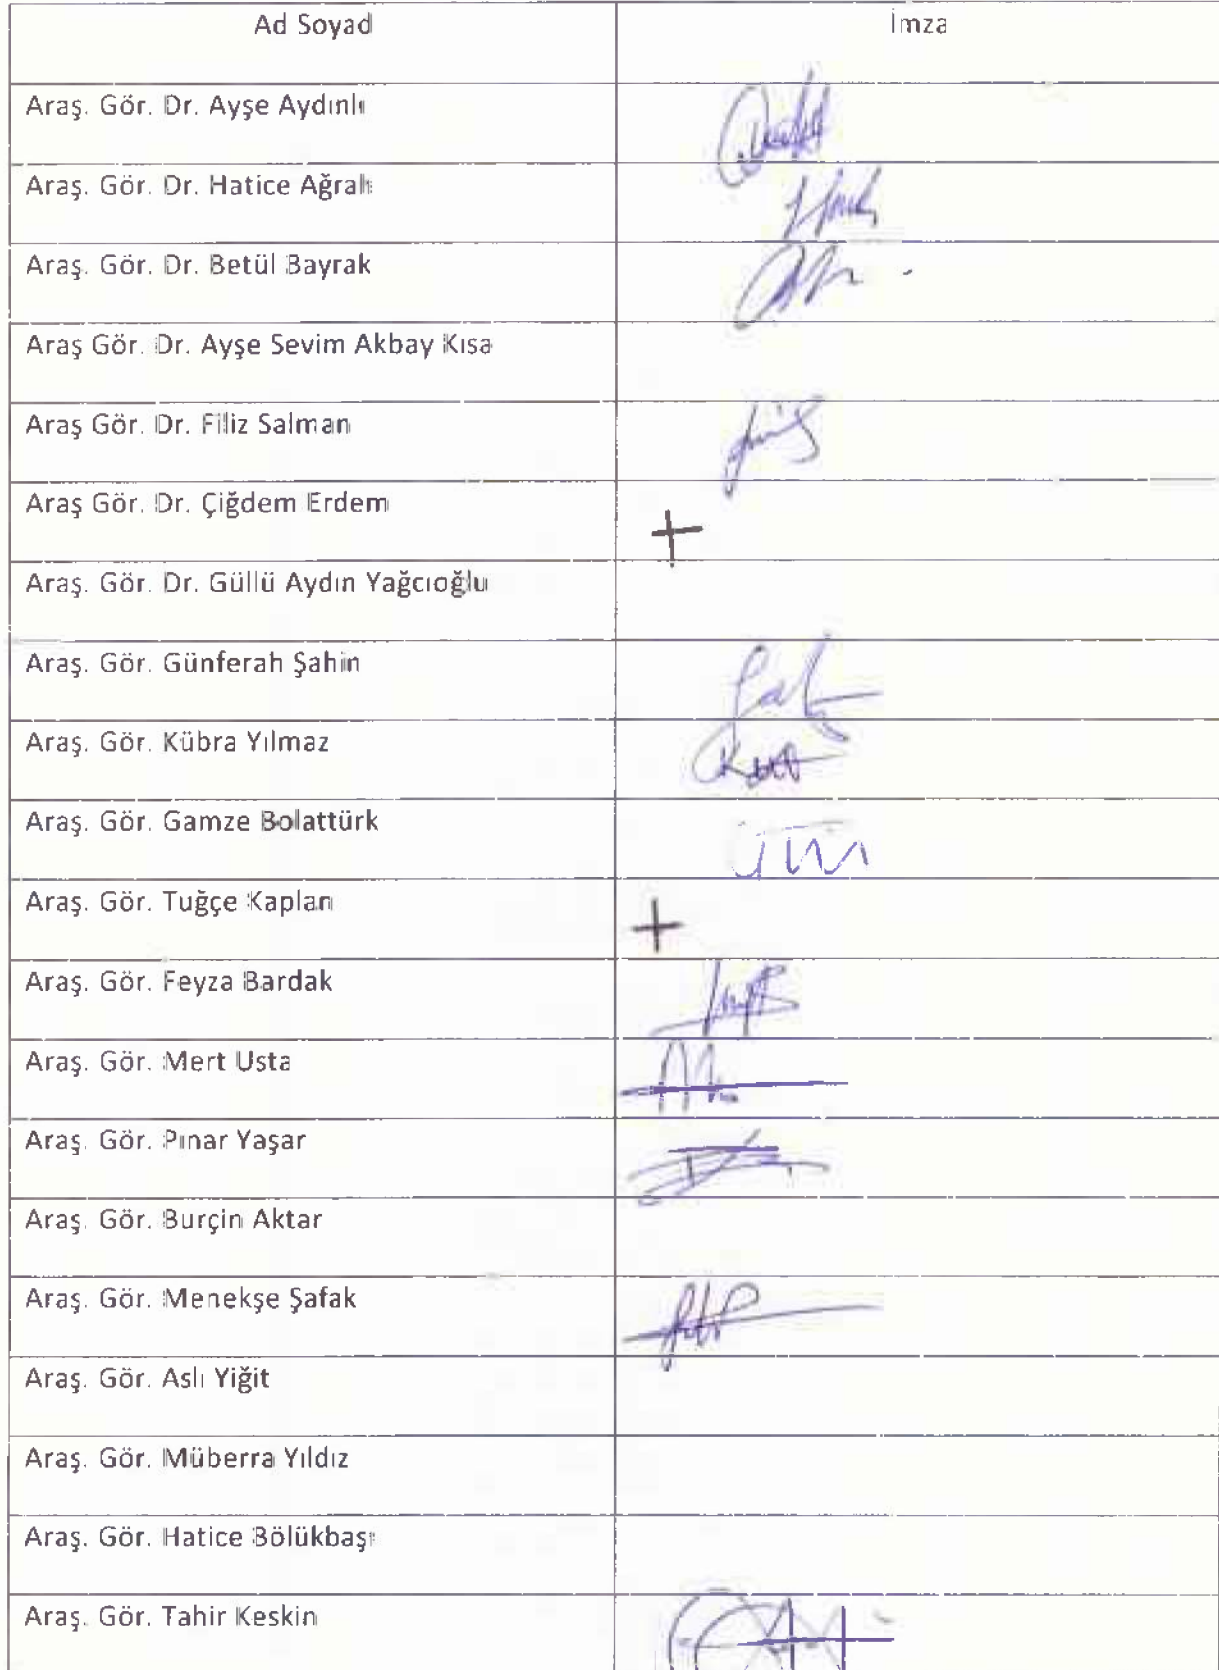 Ad Soyad İmza
Araş. Gör. Dr. Ayşe Aydınlı
Araş. Gör. Dr. Hatice Ağralı
Araş. Gör. Dr. Betül Bayrak
Araş Gör. Dr. Ayşe Sevim Akbay Kısa
Araş Gör. Dr. Filiz Salman
Araş Gör. Dr. Çiğdem Erdem +
Araş. Gör. Dr. Güllü Aydın Yağcıoğlu
Araş. Gör. Günferah Şahin
Araş. Gör. Kübra Yılmaz
Araş. Gör. Gamze Bolattürk
Araş. Gör. Tuğçe Kaplan +
Araş. Gör. Feyza Bardak
Araş. Gör. Mert Usta
Araş. Gör. Pınar Yaşar
Araş. Gör. Burçin Aktar
Araş. Gör. Menekşe Şafak
Araş. Gör. Aslı Yiğit
Araş. Gör. Müberra Yıldız
Araş. Gör. Hatice Bölükbaşı
Araş. Gör. Tahir Keskin